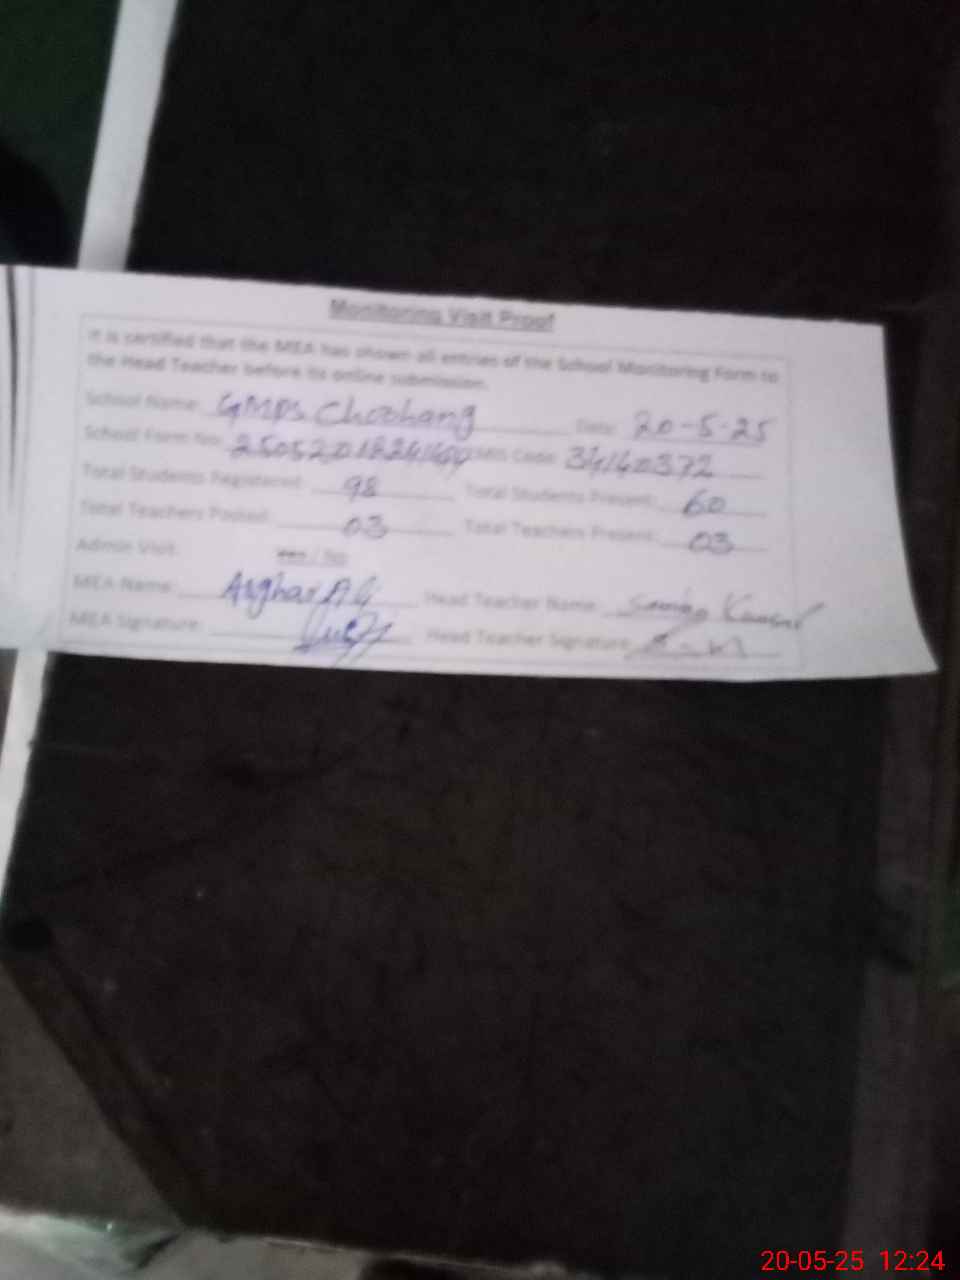 Monitoring Visit Proof
It is certified that the MEA has shown all entries of the School Monitoring Form to
the Head Teacher before its online submission.
School Name: GMPS Choohang Date: 20-5-25
School Form No: EMIS Code: 34140372
Total Students Registered: 98 Total Students Present: 60
Total Teachers Posted: 03 Total Teachers Present: 03
Admin Visit: Yes / No
MEA Name: Asghar Ali Head Teacher Name: Kausar
MEA Signature: Head Teacher Signature:
20-05-25 12:24